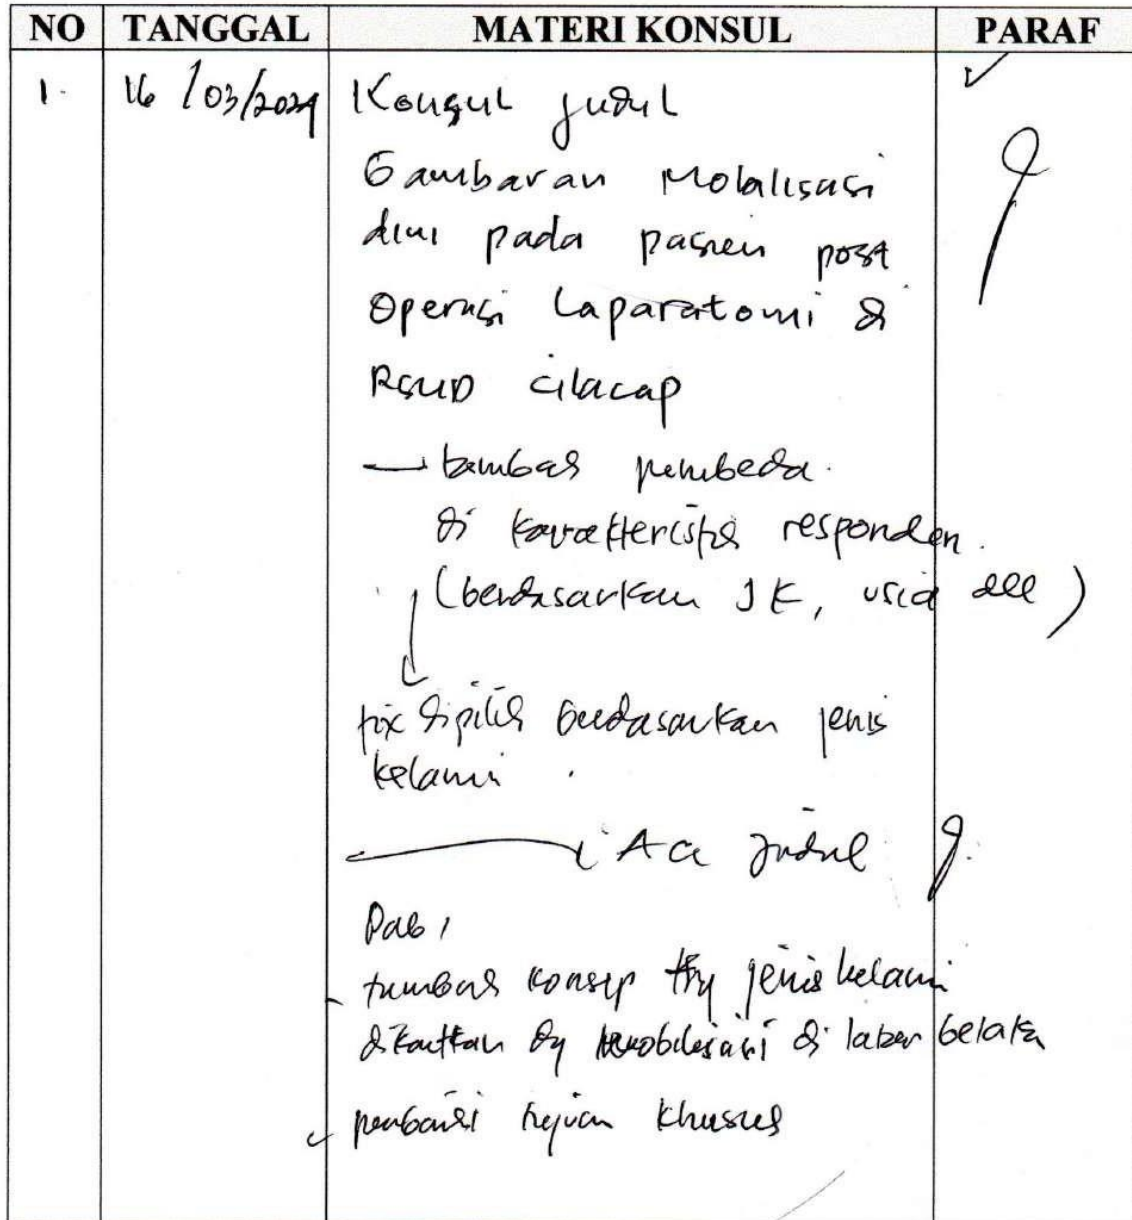 NO TANGGAL MATERI KONSUL PARAF
1. 16/03/2024 Konsul judul
Gambaran Mobalisasi
dini pada pasien post
Operasi Laparatomi di
RSUD cilacap
tambah pembeda.
di karakteristik responden.
(berdasarkan JK, usia dll)
fix dipilih berdasarkan jenis
kelamin.
Acc judul
Bab 1
tambah konsep ttg jenis kelamin
dikaitkan dg mobilisasi di latar belaka
perbaiki tujuan khusus